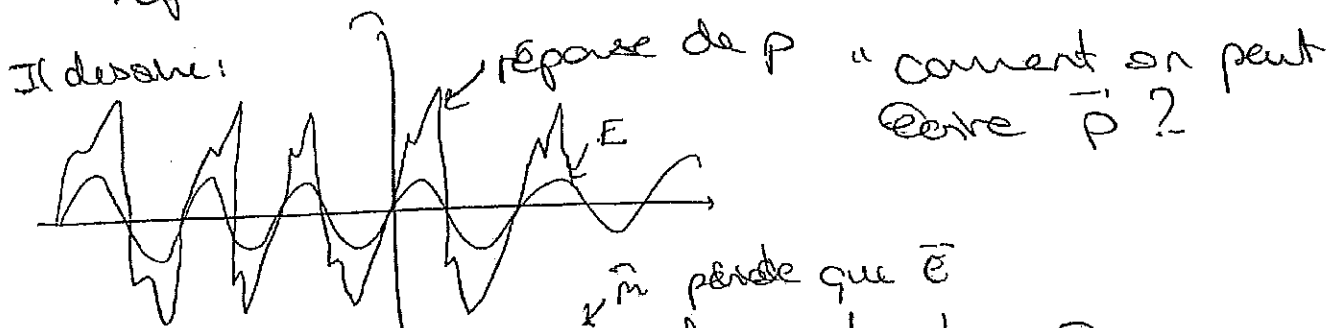 Il dessine:
réponse de p
E
" comment on peut
écrire p⃗ ?
m̂ période que e⃗